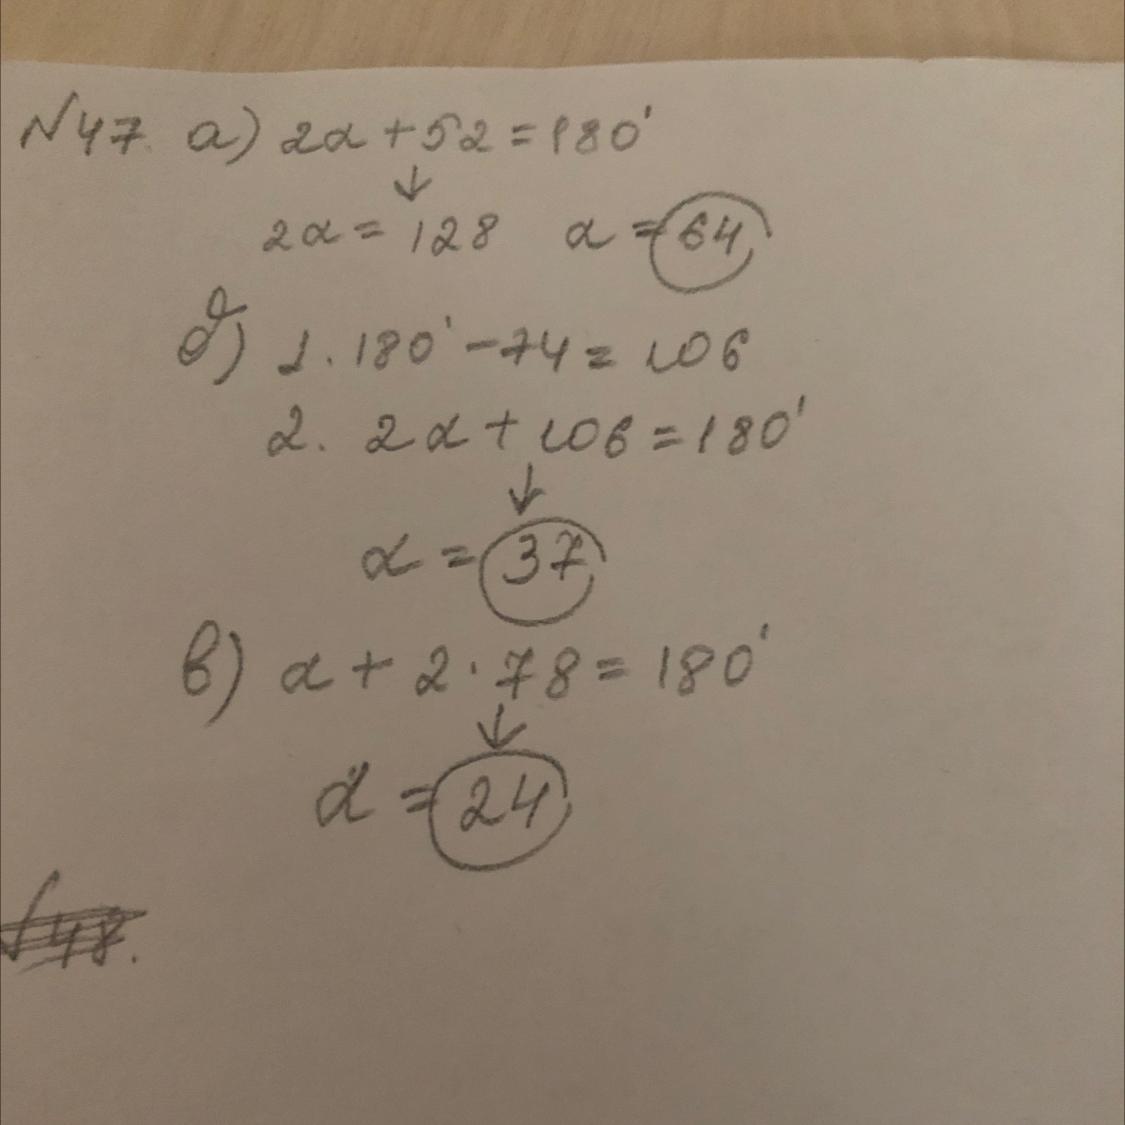 №47. а) 2α + 52 = 180'
↓
2α = 128 α = 64
б) 1. 180' - 74 = 106
2. 2α + 106 = 180'
↓
α = 37
в) α + 2 · 78 = 180'
↓
α = 24
№48.